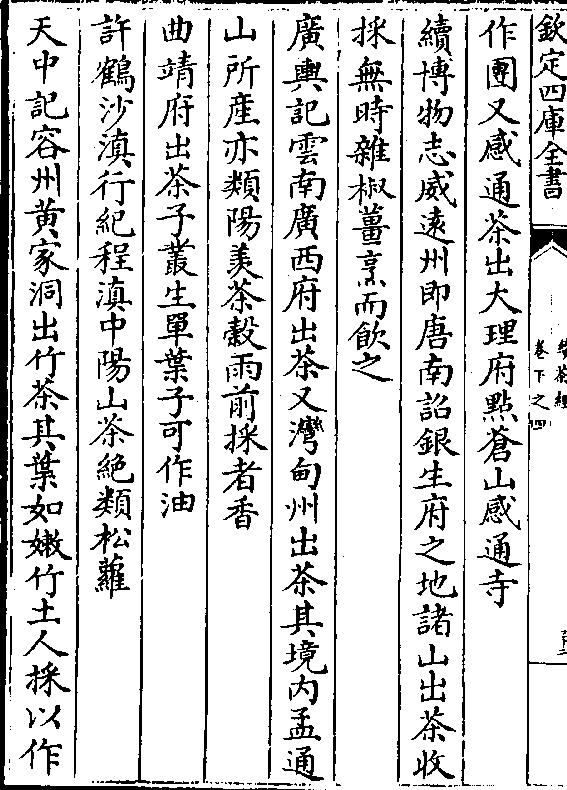 欽定四庫全書
卷下之四
作團又感通茶出大理府點蒼山感通寺
續博物志威遠州即唐南詔銀生府之地諸山出茶收
採無時雜椒薑烹而飲之
廣輿記雲南廣西府出茶又灣甸州出茶其境内孟通
山所産亦類陽羨茶穀雨前採者香
曲靖府出茶子叢生單葉子可作油
許鶴沙滇行紀程滇中陽山茶絶類松蘿
天中記容州黄家洞出竹茶其葉如嫩竹土人採以作